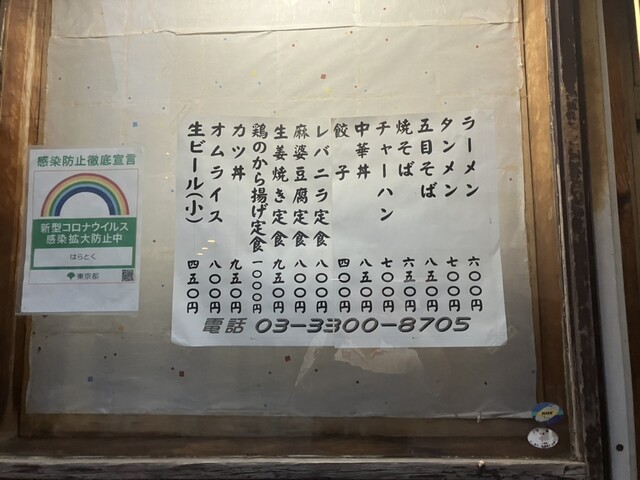 ラーメン 六〇〇円
タンメン 七〇〇円
五目そば 八五〇円
焼そば 六五〇円
チャーハン 七〇〇円
中華丼 八五〇円
餃子 四〇〇円
レバニラ定食 八〇〇円
麻婆豆腐定食 八〇〇円
生姜焼き定食 九五〇円
鶏のから揚げ定食 一〇〇〇円
カツ丼 九五〇円
オムライス 八〇〇円
生ビール(小) 四五〇円
電話 03-3300-8705
感染防止徹底宣言
新型コロナウイルス
感染拡大防止中
はらとく
東京都